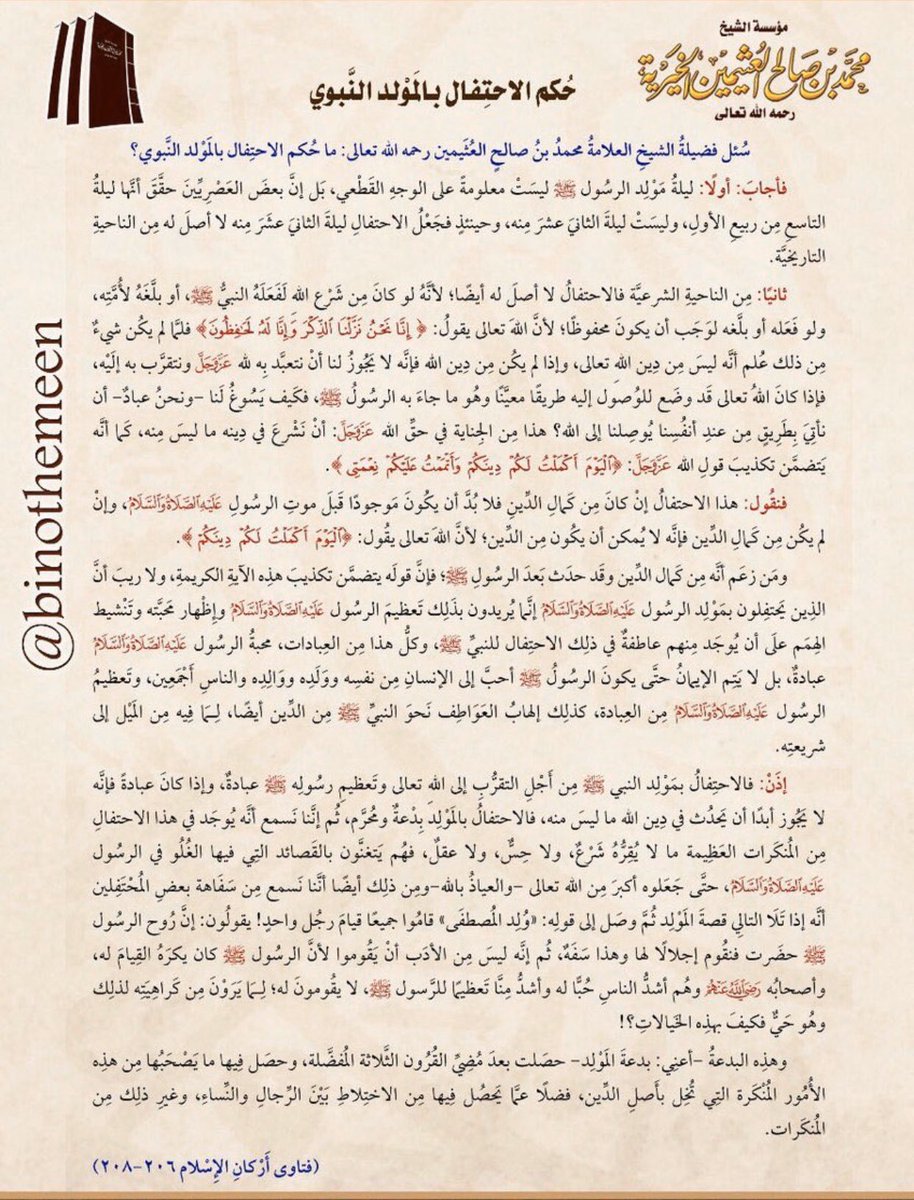 مؤسسة الشيخ
محمد بن صالح العثيمين الخيرية
رحمه الله تعالى
حُكم الاحتِفال بالمَوْلد النَّبوي
سُئل فضيلةُ الشيخِ العلامةُ محمدُ بنُ صالحٍ العُثَيمين رحمه الله تعالى: ما حُكم الاحتِفال بالمَوْلد النَّبوي؟
فأجابَ: أولًا: ليلةُ مَوْلِد الرسُول ﷺ ليسَتْ معلومةً على الوجهِ القَطْعي، بَل إنَّ بعضَ العَصْريِّينَ حقَّقَ أنَّها ليلةُ
التاسعِ مِن ربيعِ الأولِ، وليسَتْ ليلةَ الثانيَ عشرَ منه، وحينئذٍ فجَعْلُ الاحتفالِ ليلةَ الثانيَ عشَرَ مِنه لا أصلَ له مِن الناحيةِ
التاريخيَّة.
ثانيًا: مِن الناحيةِ الشرعيَّة فالاحتفالُ لا أصلَ له أيضًا؛ لأنَّهُ لو كانَ مِن شَرْعِ الله لَفَعَلَهُ النبيُّ ﷺ، أو بلَّغَهُ لأُمَّتِه،
ولو فَعَله أو بلَّغه لوَجَب أن يكونَ محفوظًا؛ لأنَّ اللهَ تعالى يقولُ: ﴿ إِنَّا نَحْنُ نَزَّلْنَا ٱلذِّكْرَ وَإِنَّا لَهُۥ لَحَـٰفِظُونَ﴾ فلمَّا لم يكُن شيءٌ
مِن ذلك عُلم أنَّه ليسَ مِن دِين الله تعالى، وإذا لم يكُن مِن دِين الله فإنَّه لا يَجُوز لنا أنْ نتعبَّد بِه لله عَزَّوَجَلَّ ونتقرَّب به إلَيْه،
فإذا كانَ اللهُ تعالى قَد وضَع للوُصُول إليه طريقًا معيَّنًا وهُو ما جاءَ به الرسُولُ ﷺ، فكَيف يَسُوغُ لنا –ونحنُ عبادٌ– أن
نأتيَ بِطَريقٍ مِن عندِ أنفُسِنا يُوصِلنا إلى الله؟ هذا مِن الجِناية في حقِّ الله عَزَّوَجَلَّ: أنْ نَشْرعَ في دِينه ما ليسَ مِنه، كَما أنَّه
يَتضمَّن تكذيبَ قولِ الله عَزَّوَجَلَّ: ﴿ٱلْيَوْمَ أَكْمَلْتُ لَكُمْ دِينَكُمْ وَأَتْمَمْتُ عَلَيْكُمْ نِعْمَتِى ﴾.
فنقُول: هذا الاحتفالُ إنْ كانَ مِن كَمالِ الدِّينِ فلا بُدَّ أن يكُونَ مَوجودًا قَبلَ موتِ الرسُولِ عَلَيْهِ ٱلصَّلَاةُ وَٱلسَّلَامُ، وإنْ
لم يكُن مِن كَمالِ الدِّين فإنَّه لا يُمكن أن يكُون مِن الدِّين؛ لأنَّ اللهَ تعالى يقُول: ﴿ٱلْيَوْمَ أَكْمَلْتُ لَكُمْ دِينَكُمْ ﴾.
ومَن زعَم أنَّه مِن كَمال الدِّين وقَد حدَث بَعدَ الرسُولِ ﷺ؛ فإنَّ قولَه يتضمَّن تكذيبَ هذِه الآيةِ الكريمةِ، ولا ريبَ أنَّ
الذِين يَحتفِلون بمَوْلِد الرسُول عَلَيْهِ ٱلصَّلَاةُ وَٱلسَّلَامُ إنَّما يُريدون بذَلِك تَعظيمَ الرسُول عَلَيْهِ ٱلصَّلَاةُ وَٱلسَّلَامُ وإظْهار مَحبَّته وتَنْشيط
الهِمَم علَى أن يُوجَد مِنهم عاطفةٌ في ذلِك الاحتِفال للنبيِّ ﷺ، وكلُّ هذا مِن العِبادات، محبةُ الرسُول عَلَيْهِ ٱلصَّلَاةُ وَٱلسَّلَامُ
عبادةٌ، بل لا يَتِم الإيمانُ حتَّى يكونَ الرسُولُ ﷺ أحبَّ إلى الإنسانِ مِن نفسِه ووَلَدِه ووالِدِه والناسِ أَجْمَعِين، وتَعظيمُ
الرسُول عَلَيْهِ ٱلصَّلَاةُ وَٱلسَّلَامُ مِن العِبادة، كذلِك إلهابُ العَوَاطِف نَحوَ النبيِّ ﷺ مِن الدِّين أيضًا، لِـمَا فِيه مِن المَيْل إلى
شريعتِه.
إذَنْ: فالاحتِفالُ بمَوْلِد النبي ﷺ مِن أَجْلِ التقرُّبِ إلى اللهِ تعالى وتَعظيمِ رسُولِه ﷺ عبادةٌ، وإذا كانَ عبادةً فإنَّه
لا يَجُوز أبدًا أن يَحدُث في دِين الله ما ليسَ منه، فالاحتفالُ بالمَوْلِد بِدْعةٌ ومُحرَّم، ثُم إنَّنا نَسمع أنَّه يُوجَد في هذا الاحتفالِ
مِن المُنكَرات العَظِيمة ما لا يُقِرُّهُ شَرْعٌ، ولا حِسٌّ، ولا عقلٌ، فهُم يَتغنَّون بالقَصائد التِي فِيها الغُلُو في الرسُول
عَلَيْهِ ٱلصَّلَاةُ وَٱلسَّلَامُ، حتَّى جَعَلوه أكبرَ مِن الله تعالى –والعياذُ بالله–ومِن ذلِك أيضًا أنَّنا نَسمع مِن سَفَاهة بعضِ المُحْتَفلين
أنَّه إذا تَلَا التالي قصةَ المَوْلِد ثُمَّ وصَل إلى قولِه: «وُلِد المُصطفَى» قامُوا جميعًا قيامَ رجُل واحدٍ! يقولُون: إنَّ رُوح الرسُول
ﷺ حضَرت فنقُوم إجلالًا لها وهذا سَفَهٌ، ثُم إنَّه ليسَ مِن الأدَب أنْ يَقُوموا لأنَّ الرسُول ﷺ كان يكرَهُ القِيامَ له،
وأصحابُه رَضِيَ ٱللَّهُ عَنْهُمْ وهُم أشدُّ الناسِ حُبًّا له وأشدُّ مِنَّا تَعظيمًا للرَّسول ﷺ، لا يقُومون له؛ لِـمَا يَرَوْنَ مِن كَراهِيَتِه لذلِك
وهُو حَيٌّ فكيفَ بهذِه الخَيالاتِ؟!
وهذِه البدعةُ –أعنِي: بدعةَ المَوْلِد– حصَلت بعدَ مُضِيِّ القُرُون الثَّلاثة المُفضَّلة، وحصَل فِيها ما يَصْحَبُها مِن هذِه
الأُمُور المُنْكَرة التِي تُخِل بأَصلِ الدِّين، فضلًا عمَّا يَحصُل فِيها مِن الاختِلاطِ بَيْنَ الرِّجالِ والنِّساءِ، وغيرِ ذلِك مِن
المُنكَرات.
(فتاوى أَرْكانِ الإسْلام ٢٠٦-٢٠٨)
@binothemeen